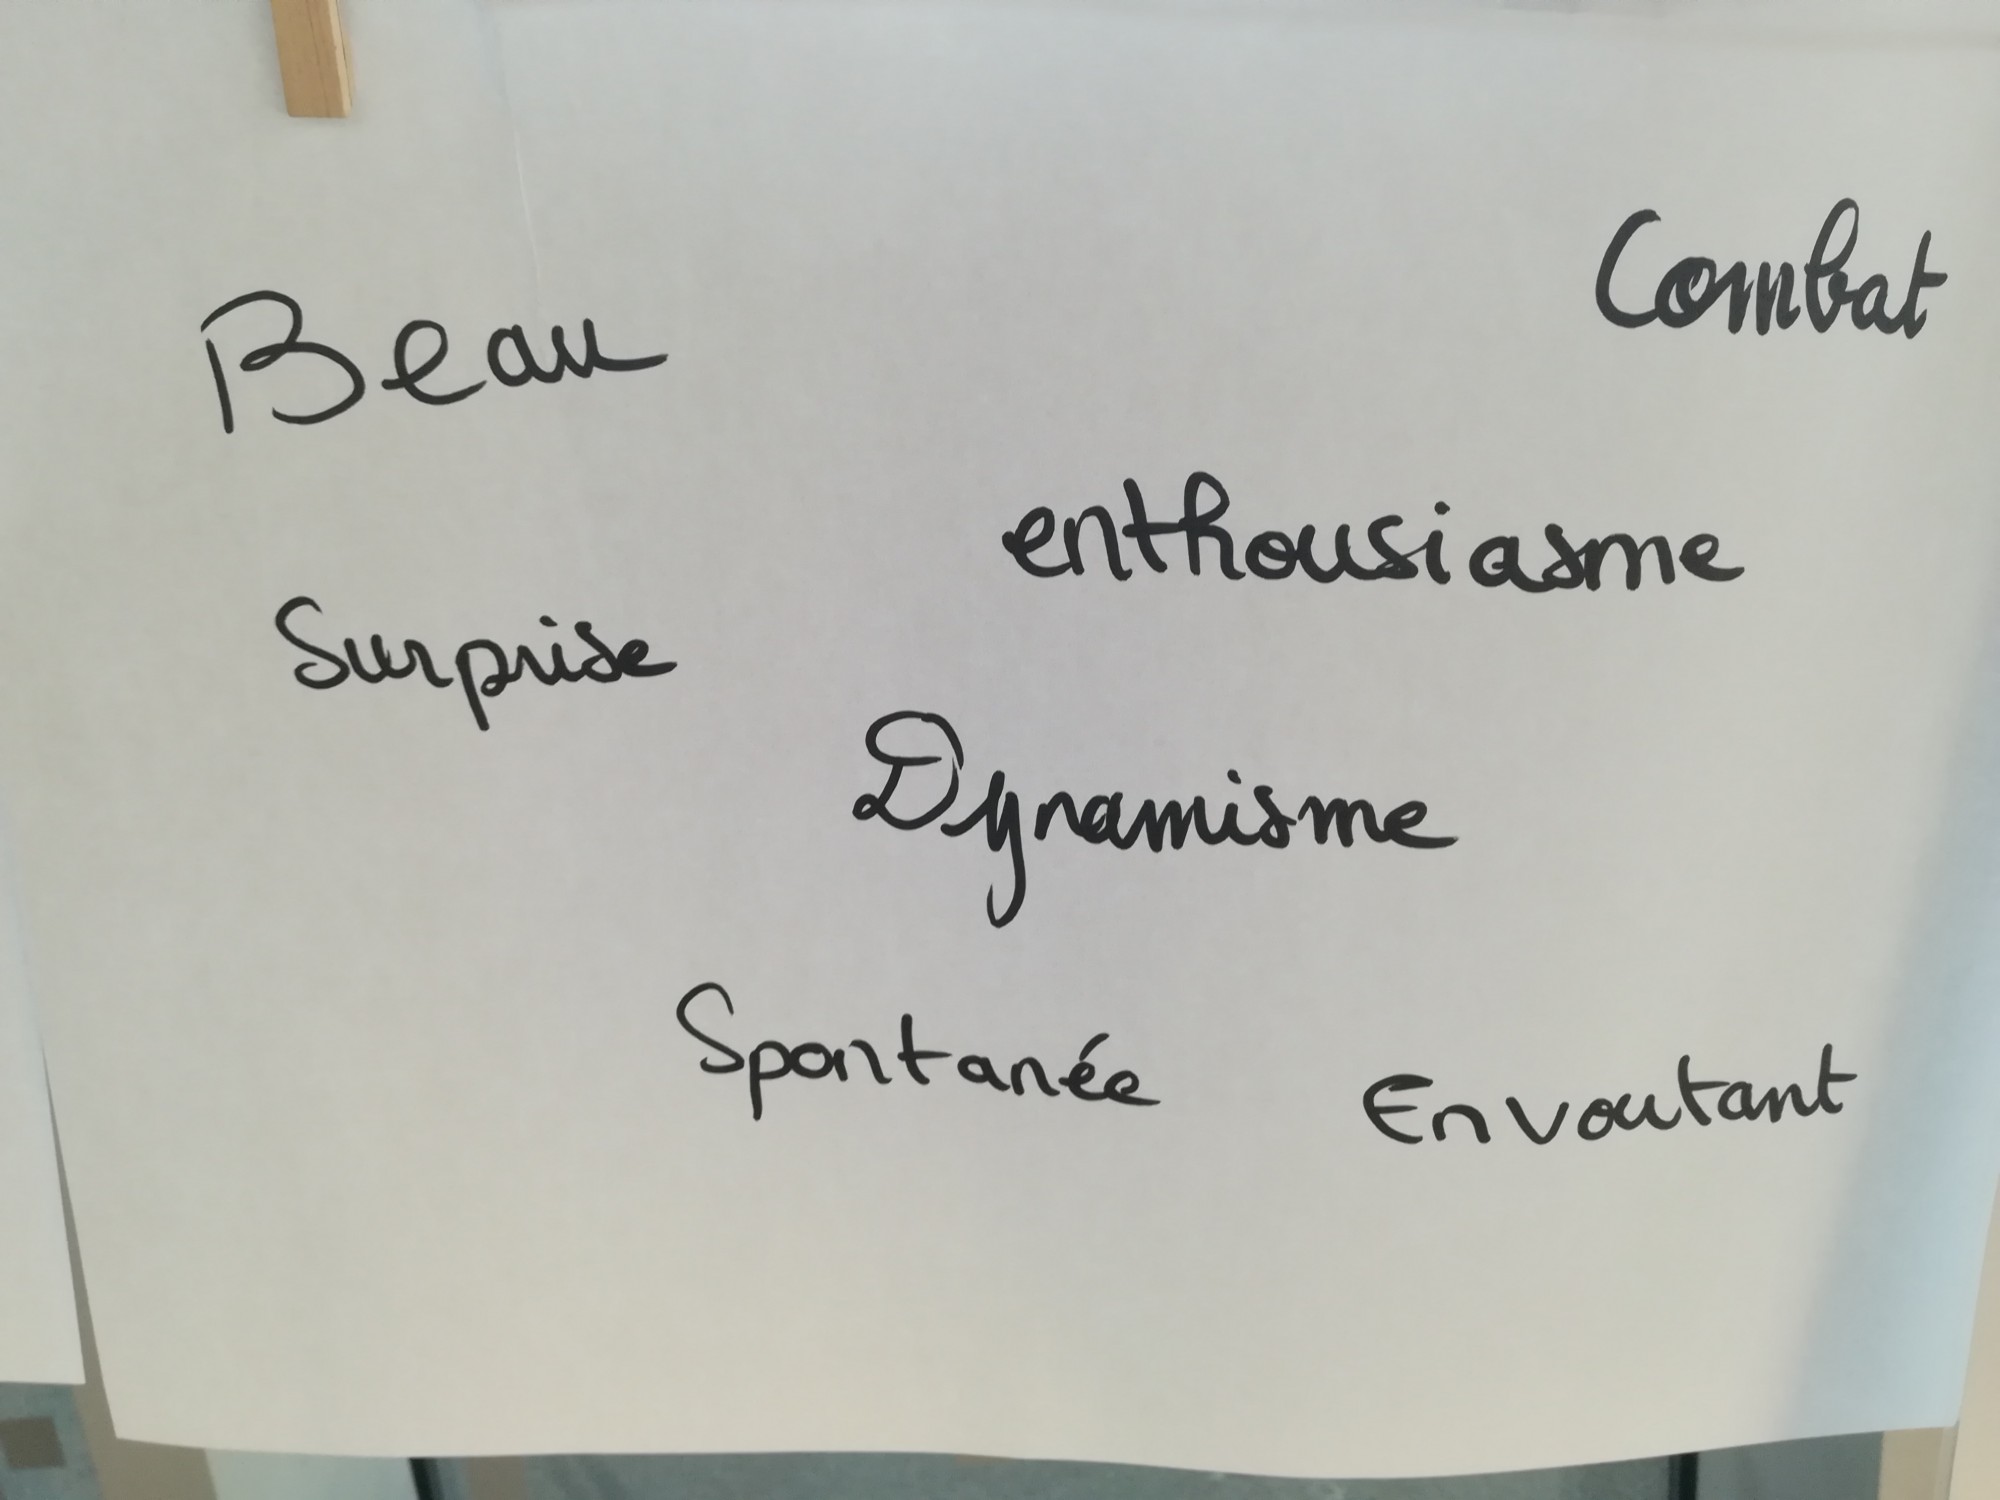 Combat
Beau
enthousiasme
Surprise
Dynamisme
Spontanée
Envoutant